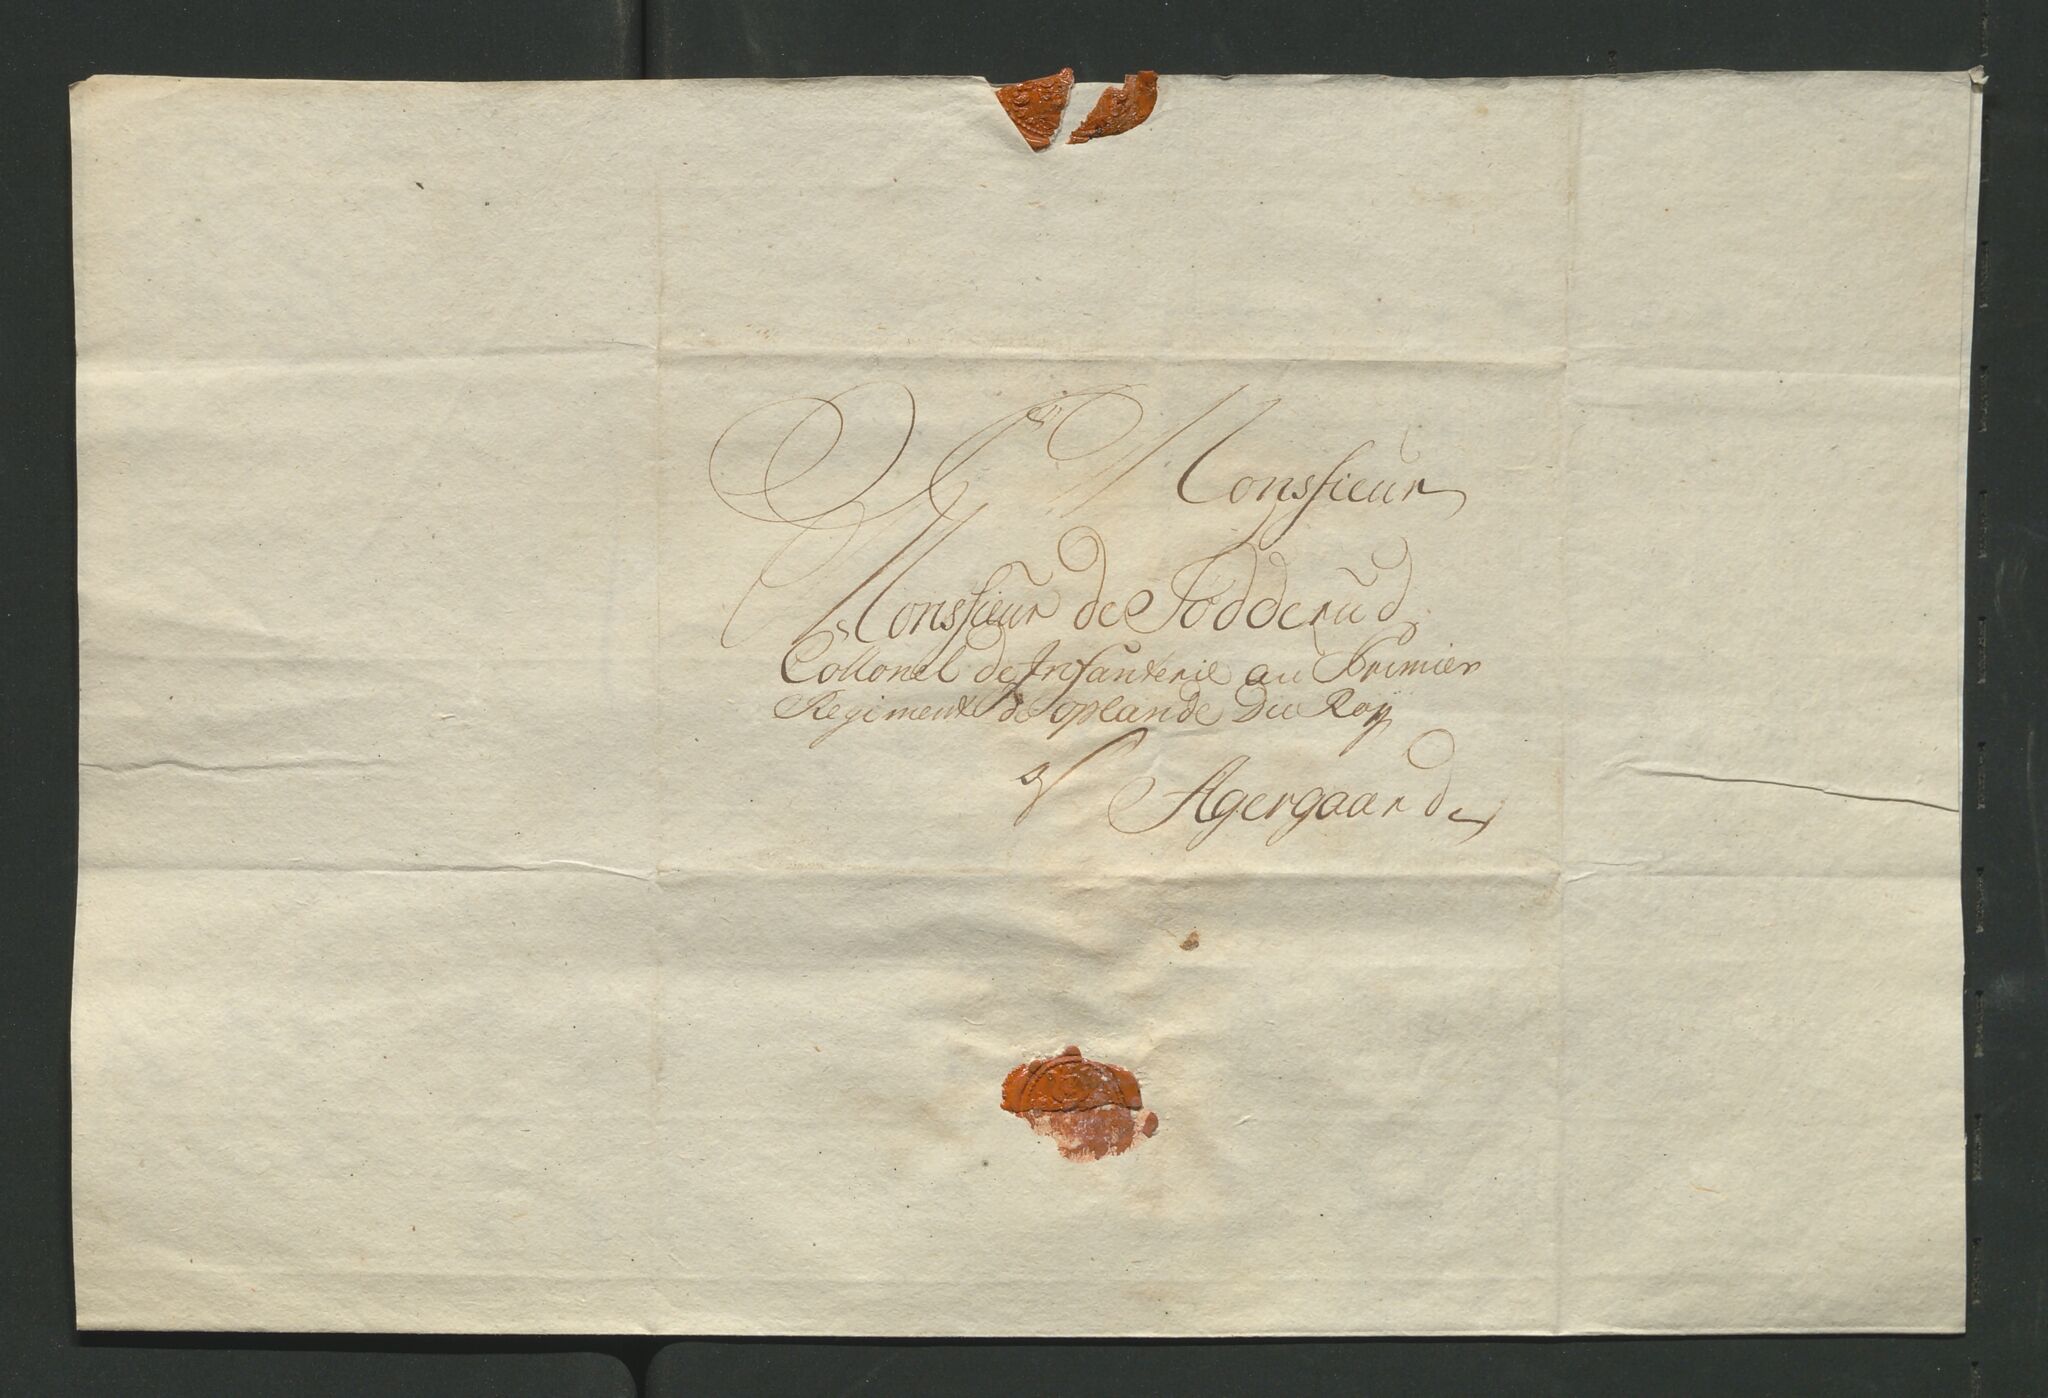 Monsieur
Monsieur de Tödderud
Collonel de Infanterie au Primier
Regiment de oplande Du Roy
a Agergaard